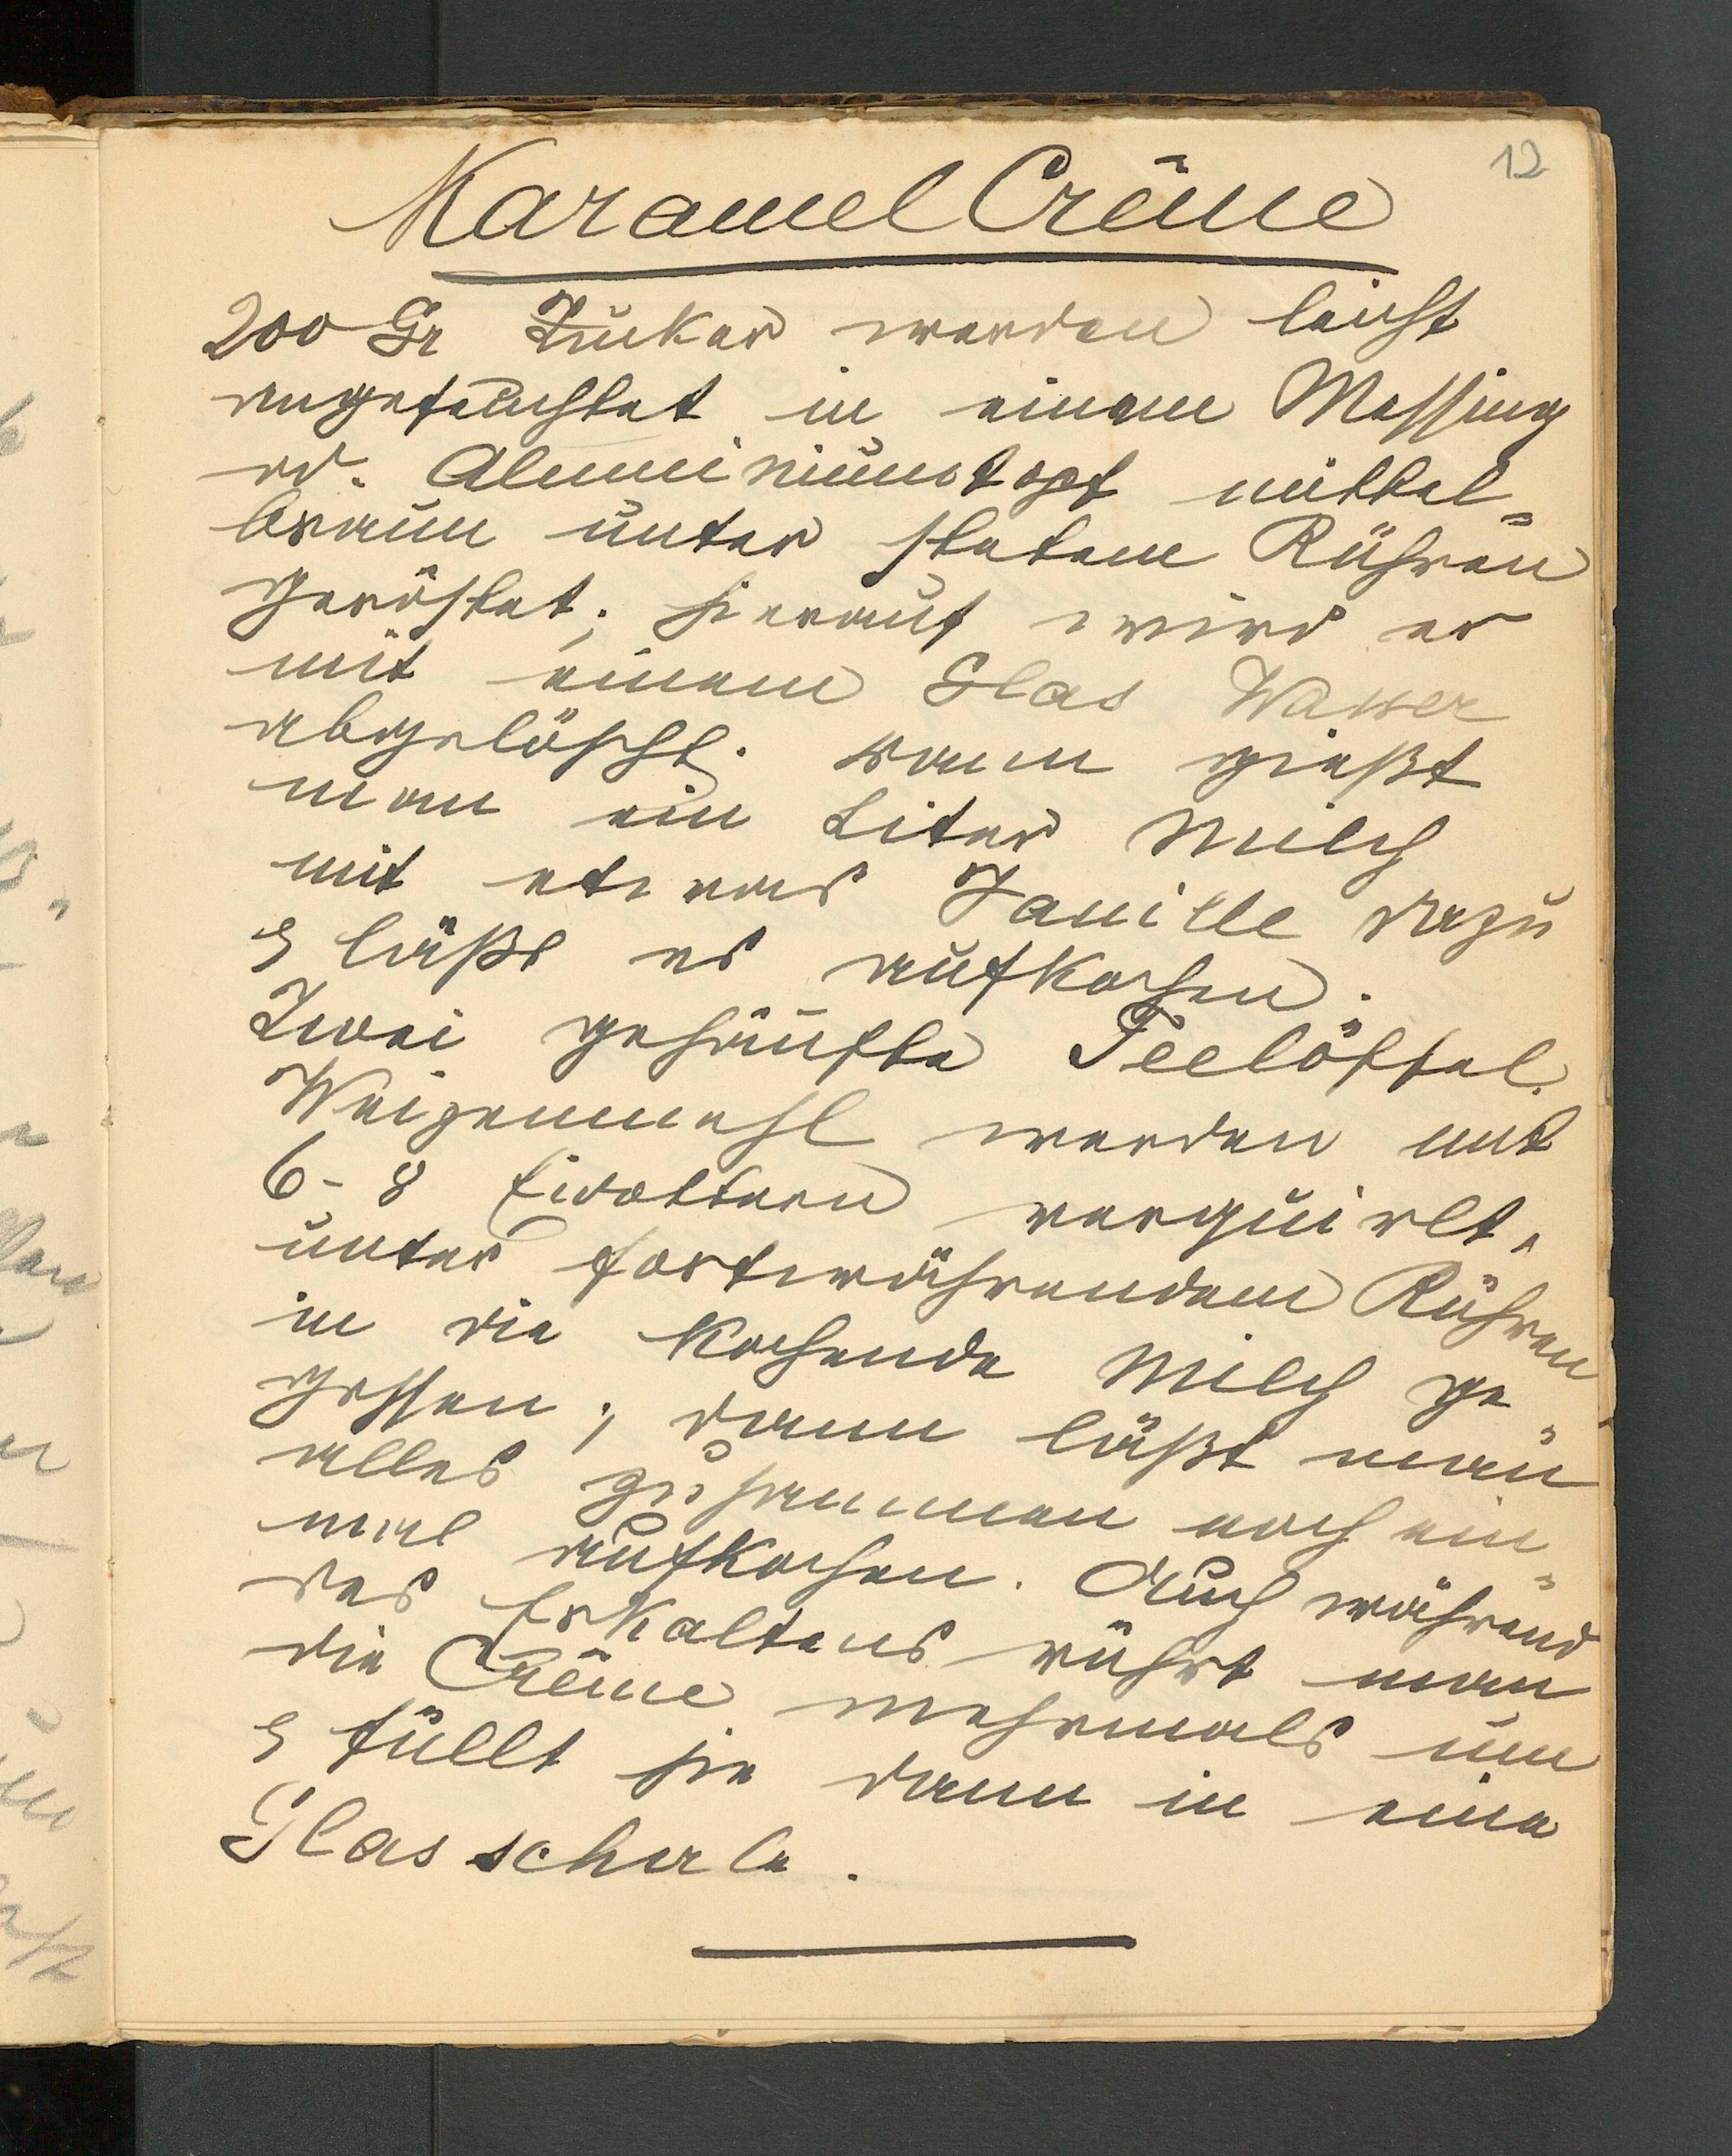 12
Karamel Crême
200 Gr Zucker werden leicht
angefeuchtet in einem Messing
od. Aluminiumtopf mittel=
braun unter stetem Rühren
geröstet; hierauf wird er
mit einem Glas Wasser
abgelöscht. dann gießt
man ein Liter Milch
mit etwas Vanille dazu
& läßt es aufkochen.
Zwei gehäufte Teelöffel
Weizenmehl werden mit
6 - 8 Eidottern verquirlt,
unter fortwährendem Rühren
in die kochende Milch ge=
gossen; dann läßt man
alles zusammen noch ein=
mal aufkochen. Auch während
des Erkaltens rührt man
die Crême mehrmals um
& füllt sie dann in eine
Glasschale.